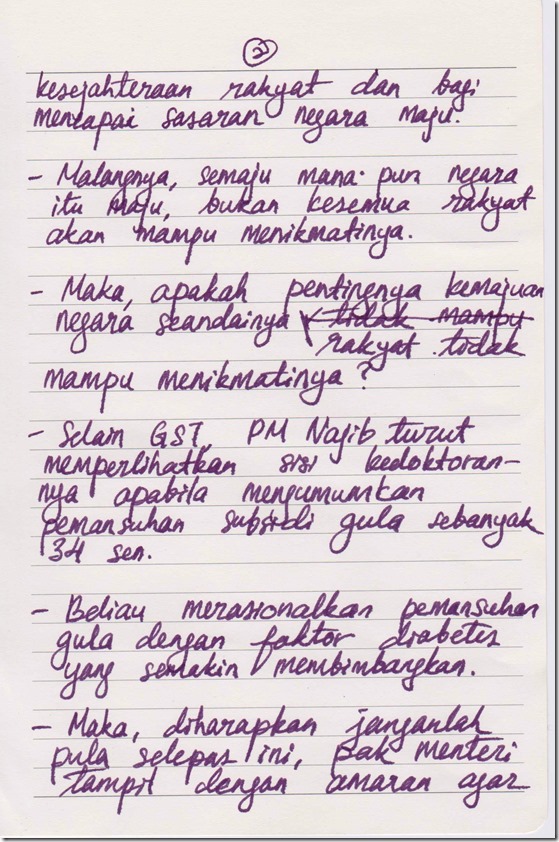 2
kesejahteraan rakyat dan bagi
mencapai sasaran negara maju.
- Malangnya, semaju mana pun negara
itu maju, bukan kesemua rakyat
akan mampu menikmatinya.
- Maka, apakah pentingnya kemajuan
negara seandainya tidak mampu
rakyat tidak
mampu menikmatinya?
- Selain GST, PM Najib turut
memperlihatkan sisi kedoktoran-
nya apabila mengumumkan
pemansuhan subsidi gula sebanyak
34 sen.
- Beliau merasionalkan pemansuhan
gula dengan faktor diabetes
yang semakin membimbangkan.
- Maka, diharapkan janganlah
pula selepas ini, pak menteri
tampil dengan amaran agar